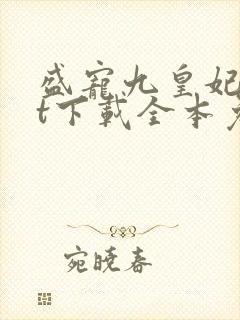 盛寵九皇妃
t下載全本
宛曉春